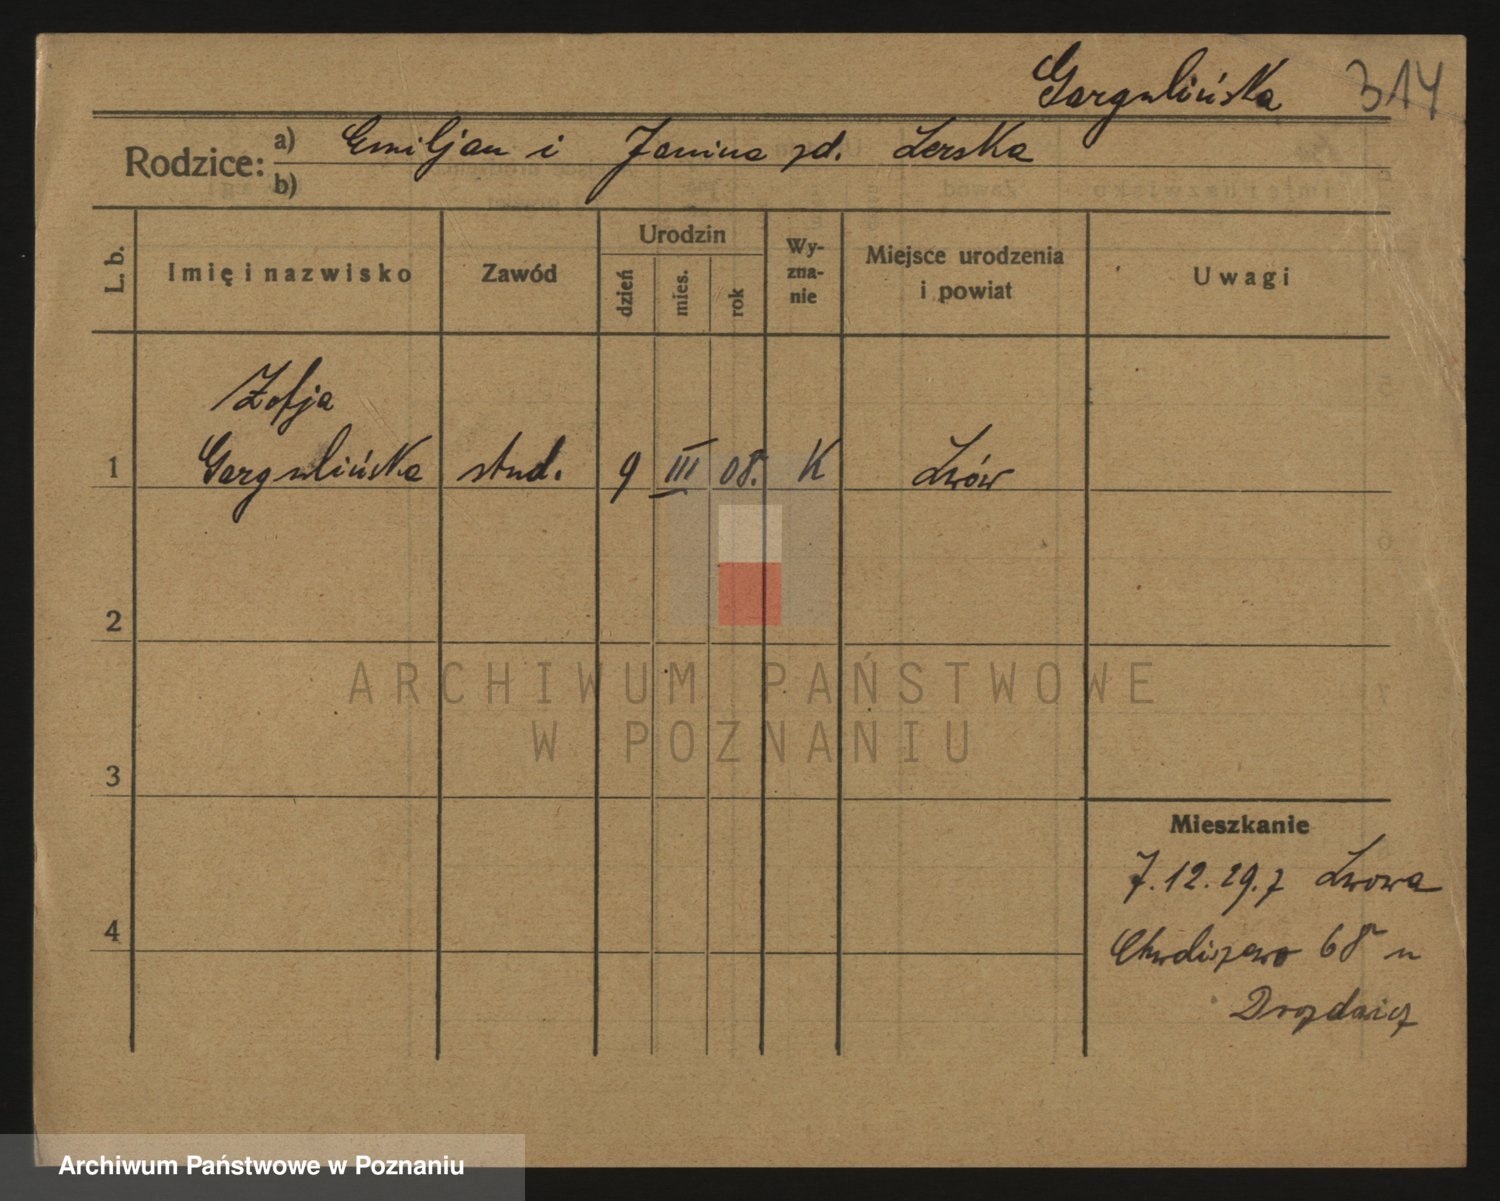 Gargulińska 314
Rodzice: a) Emiljan i Janina zd. Lerska
b)
L. b. Imię i nazwisko Zawód Urodzin dzień mies. rok Wyznanie Miejsce urodzenia i powiat Uwagi
Zofja
1 Gargulińska stud. 9 III 08. K Lwów
2
3
4
Mieszkanie
7.12.29. z Lwowa
68 u
ARCHIWUM PAŃSTWOWE
W POZNANIU
Archiwum Państwowe w Poznaniu